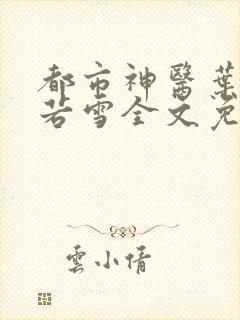 都市神醫葉
若雪全文免
雲小倩